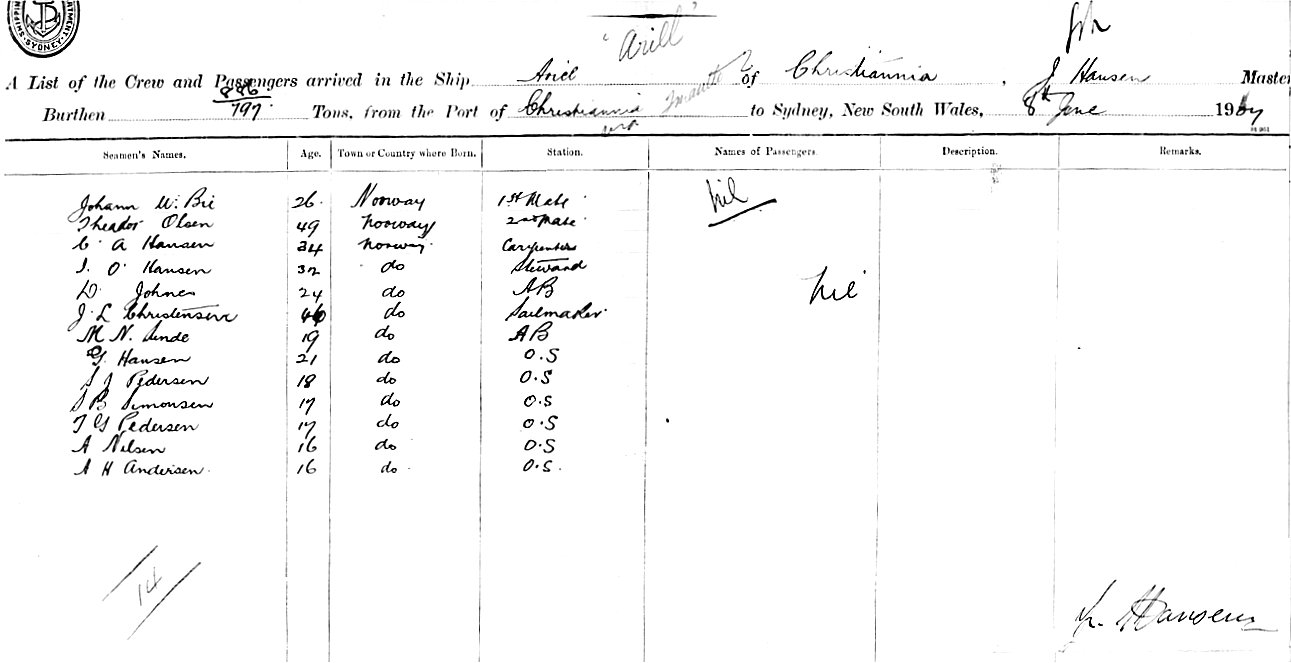 SHIPPIN
ARTMENT.
· SYDNEY ·
"Arill"
A List of the Crew and Passengers arrived in the Ship Ariel of Christiannia, J Hansen Master
Burthen 886/797 Tons, from the Port of Christiannia to Sydney, New South Wales, 8th June 190
Seamen's Names. Age. Town or Country where Born. Station. Names of Passengers. Description. Remarks.
Johann W. Bie 26 Norway 1st Mate nil
Theador Olsen 49 Norway 2nd Mate
C. A Hansen 34 Norway Carpenter
I. O. Hansen 32 do Steward
D. Johnes 24 do AB nil
J. L Christensen do Sailmaker
M N. 19 do AB
G. Hansen 21 do O.S
S J Pedersen 18 do O.S
S B Simonsen 17 do O.S
T G Pedersen 17 do O.S
A Nilsen 16 do O.S
A H Andersen 16 do O.S.
14
Hansen